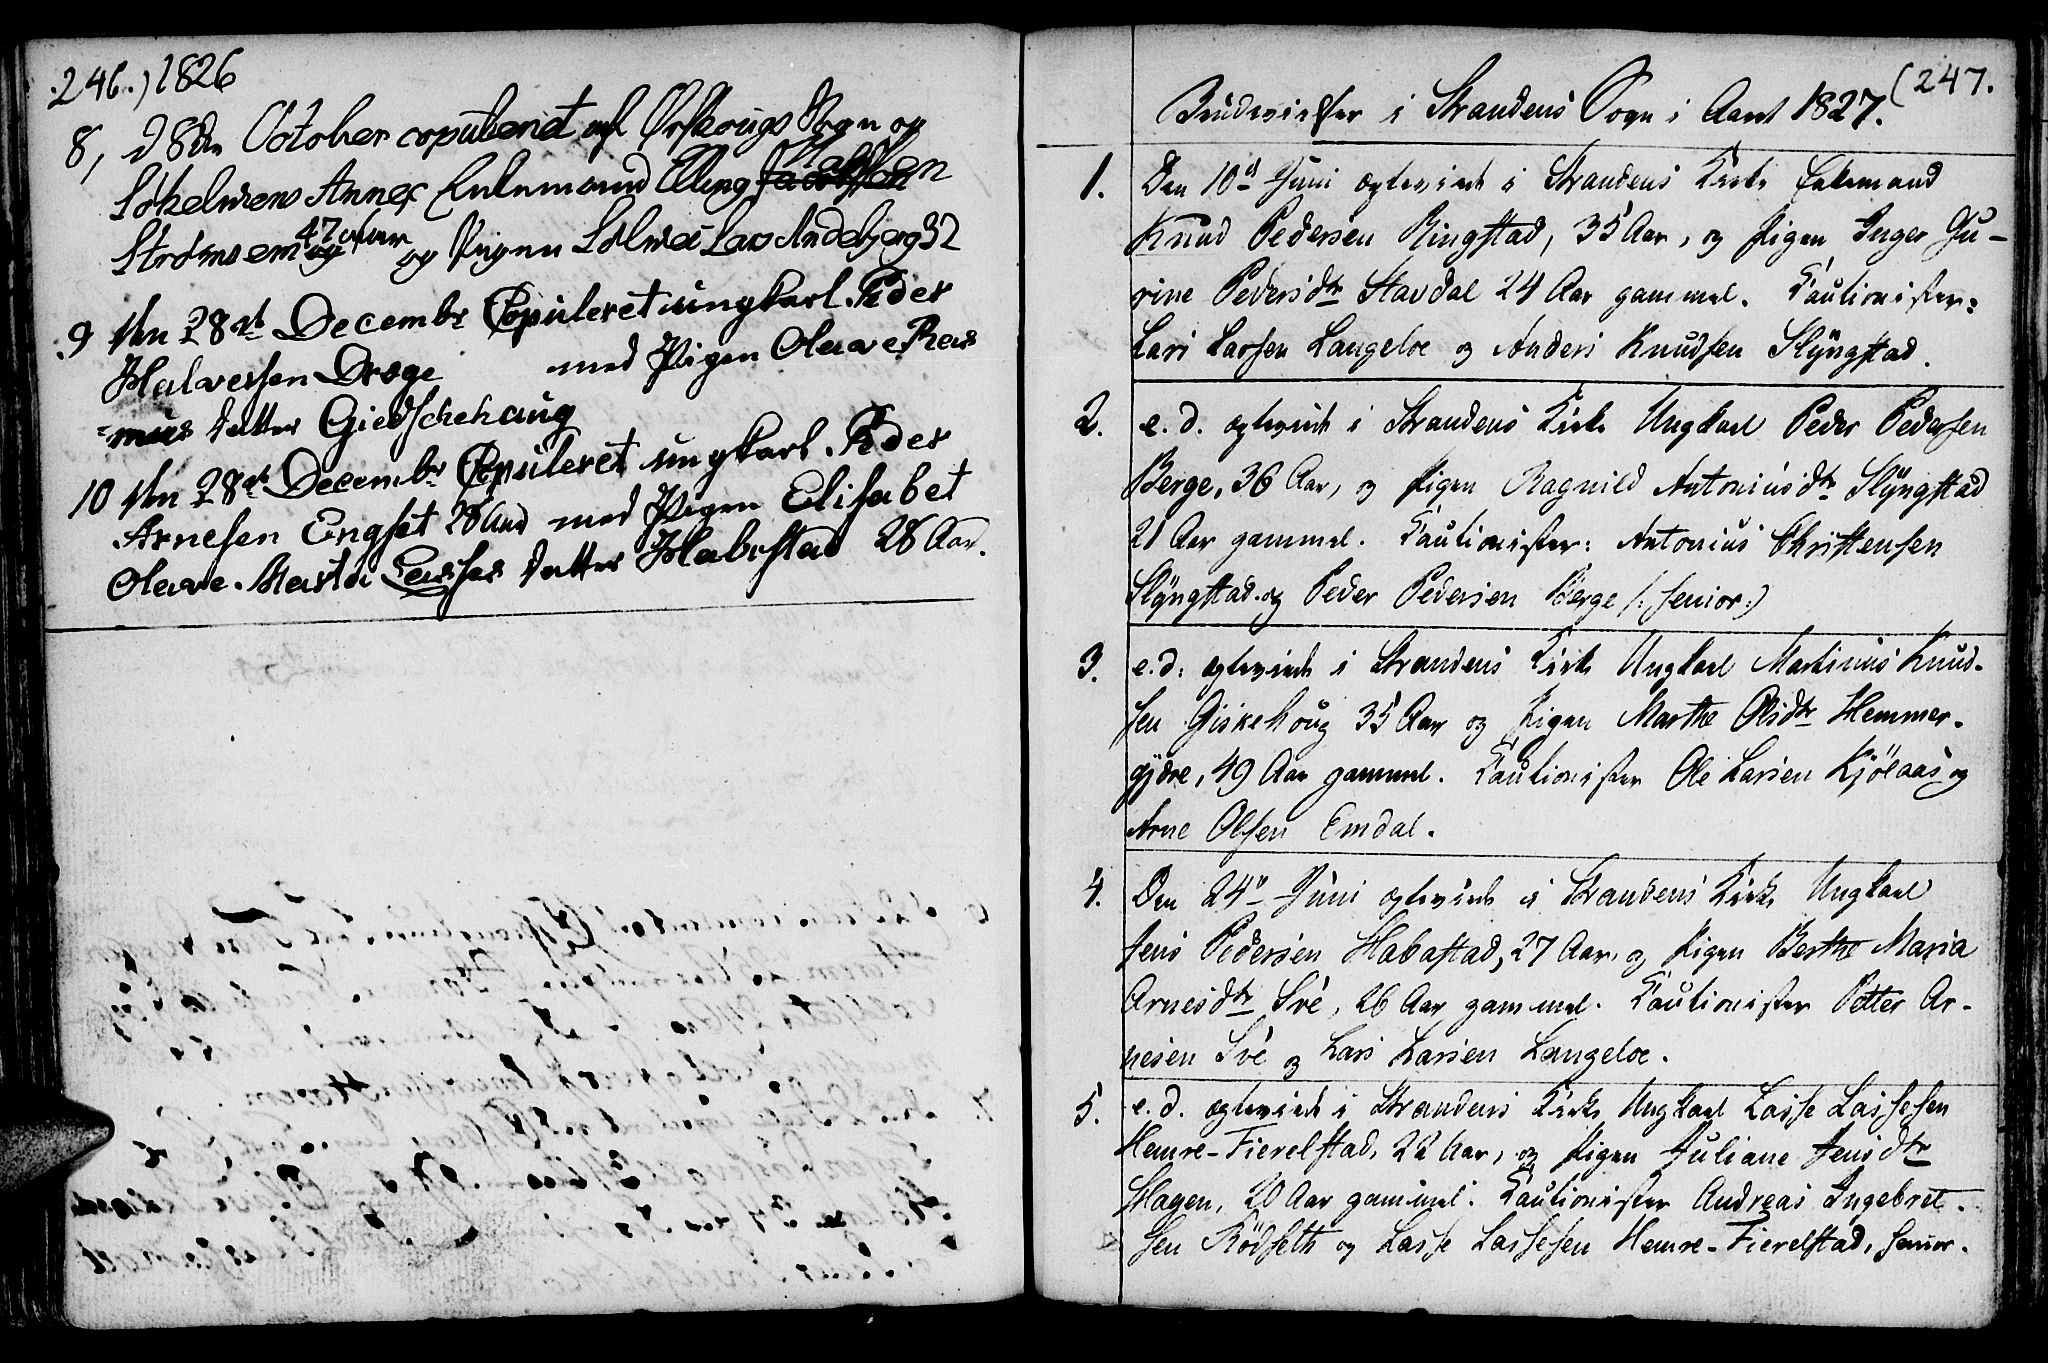 246.) 1826
8, d 8de October copuleret af Ørskougs Sogn og
Enkemand Elling Jacobsen
47 Aar
og Pigen Lars Andebjerg 32
9 den 28de Decembr Copuleret ungkarl. Peder
Halvorsen Drøge med Pigen Olave Ras
mus datter Giedschehaug
10 den 28de Decembr Copuleret ungkarl. Peder
Arnesen Engset 28 Aar med Pigen Elisabet
Olave. Marta Lasses datter Habostad 28 Aar.
(247.
Brudevielser i Strandens Sogn i Aaret 1827.
1. Den 10d Juni egteviet i Strandens Kirke Enkemand
Knud Pedersen Ringstad, 35 Aar, og Pigen Inger Ju-
rine Pedersdtr Stavdal 24 Aar gammel. Kautionister:
Lars Larsen Langeloe og Anders Knudsen Slÿngstad.
2. e. d. egteviet i Strandens Kirke Ungkarl Peder Pedersen
Berge, 36 Aar, og Pigen Ragnild Antoniusdtr Slÿngstad
21 Aar gammel. Kautionister: Antonius Christensen
Slÿngstad og Peder Pedersen Berge /: senior :/
3. e. d. egteviet i Strandens Kirke Ungkarl Martinus Knud-
sen Giskehoug 35 Aar og Pigen Marthe Olsdtr Hemmer-
gjdre, 49 Aar gammel. Kautionister Ole Larsen Kjölaas og
Arne Olsen Emdal.
4. Den 24d Juni egteviet i Strandens Kirke Ungkarl
Jens Pedersen Habastad, 27 Aar, og Pigen Berthe Maria
Arnesdtr Své, 26 Aar gammel. Kautionister Petter Ar-
nesen Své og Lars Larsen Langeloe.
5. e. d. egteviet i Strandens Kirke Ungkarl Lasse Lassesen
Hemre-Fierelstad, 22 Aar, og Pigen Juliane Jensdtr
Hagen, 20 Aar gammel. Kautionister Andreas Ingebret-
sen Rödseth og Lasse Lassesen Hemre-Fierelstad, senior.